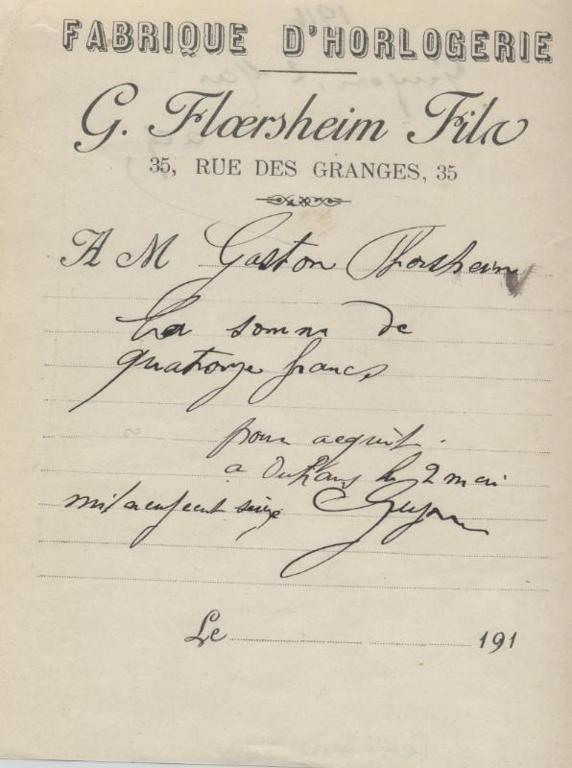 FABRIQUE D'HORLOGERIE
G. Flœrsheim Fils
35, RUE DES GRANGES, 35
A M Gaston Florsheim
La somme de
quatorze francs
pour acquit.
a le 2 mai
mil neuf cent seize Guyon
Le 191